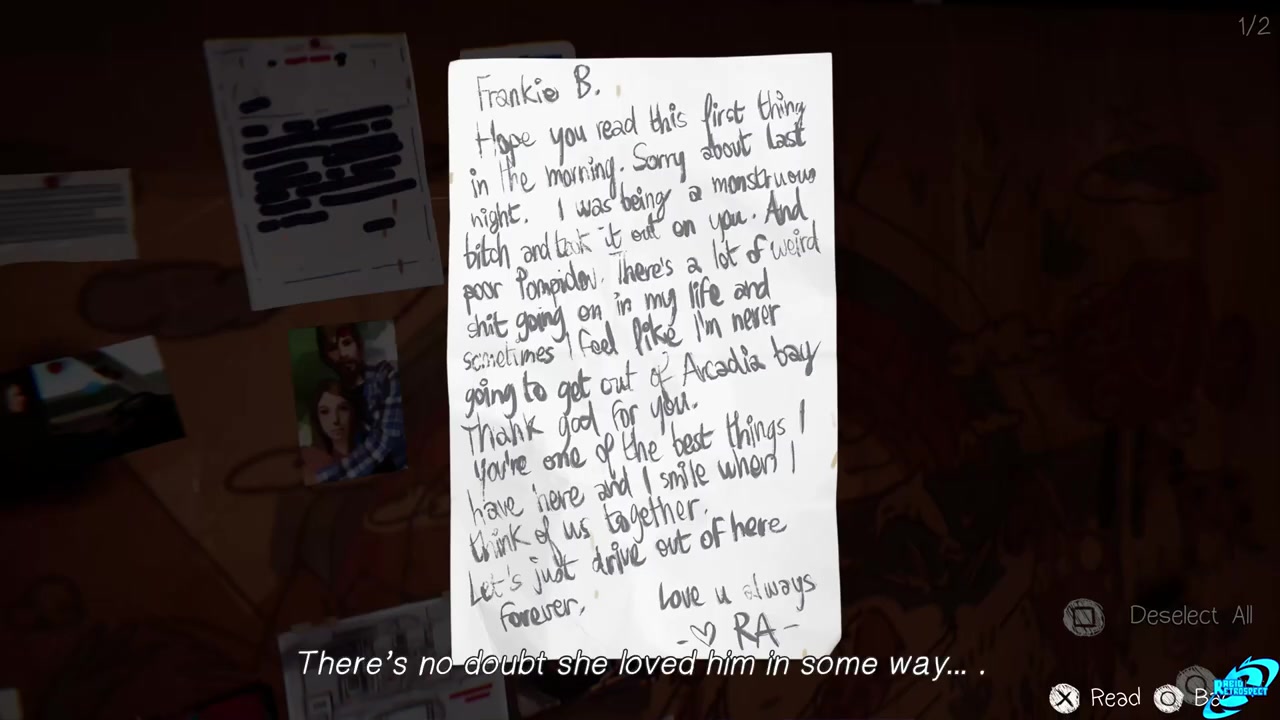 1/2
Frankie B.
Hope you read this first thing
in the morning. Sorry about last
night. I was being a monstruous
bitch and took it out on you. And
poor Pompidou. There's a lot of weird
shit going on in my life and
sometimes I feel like I'm never
going to get out of Arcadia bay
Thank god for you.
You're one of the best things I
have here and I smile when I
think of us together.
Let's just drive out of here
forever.
Love u always
-♡ RA-
There's no doubt she loved him in some way... .
Deselect All
Read
RETROSPECT